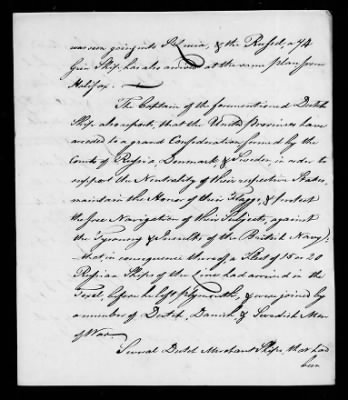 was seen going into St Lucia, & the Russel, a 74
Gun Ship has also arrived at the same place from
Halifax.
The Captain of the forementioned Dutch
Ship also reports, that the United Provinces have
acceded to a grand Confederation formed by the
Courts of Russia, Denmark & Sweden, in order to
support the Neutrality of their respective States,
maintain the Honor of their Flaggs, & protect
the free Navigation of their Subjects, against
the Tyranny & Insults of the British Navy;
that in consequence thereof a Fleet of 15 or 20
Russian Ships of the Line had arrived in the
Texel, before he left Plymouth, & were joined by
a number of Dutch, Danish, & Swedish Men
of War.
Several Dutch Merchant Ships, that had
been